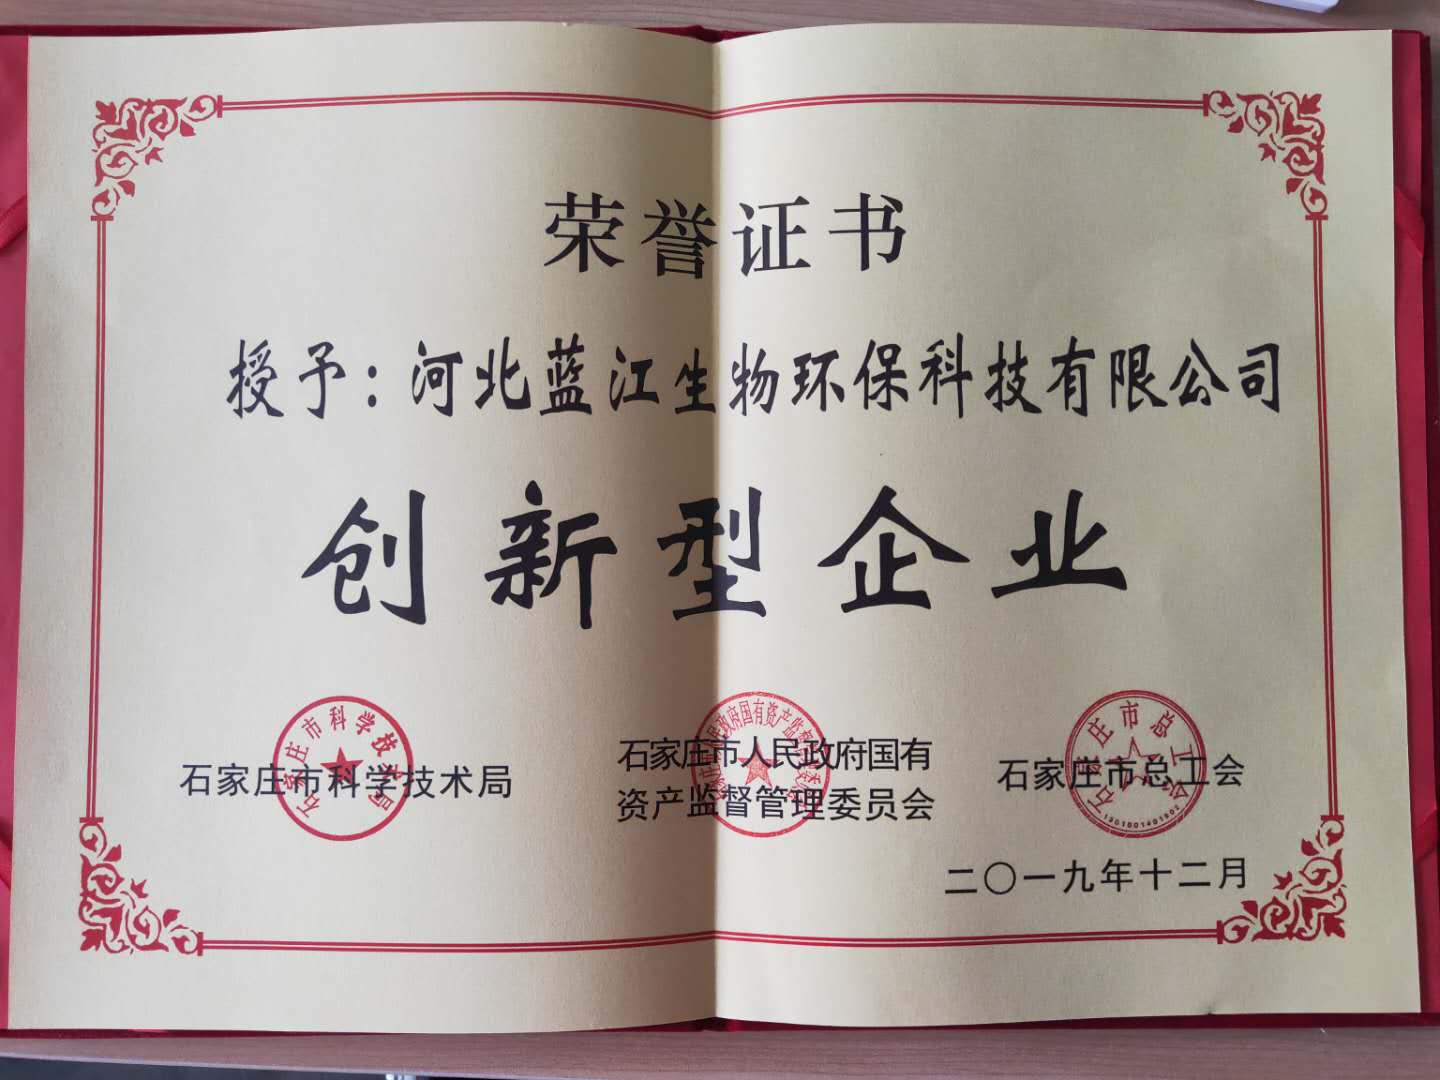 荣誉证书
授予：河北蓝江生物环保科技有限公司
创新型企业
石家庄市科学技术局
石家庄市科学技术局
石家庄市人民政府国有
资产监督管理委员会
石家庄市总工会
石家庄市总工会
二〇一九年十二月